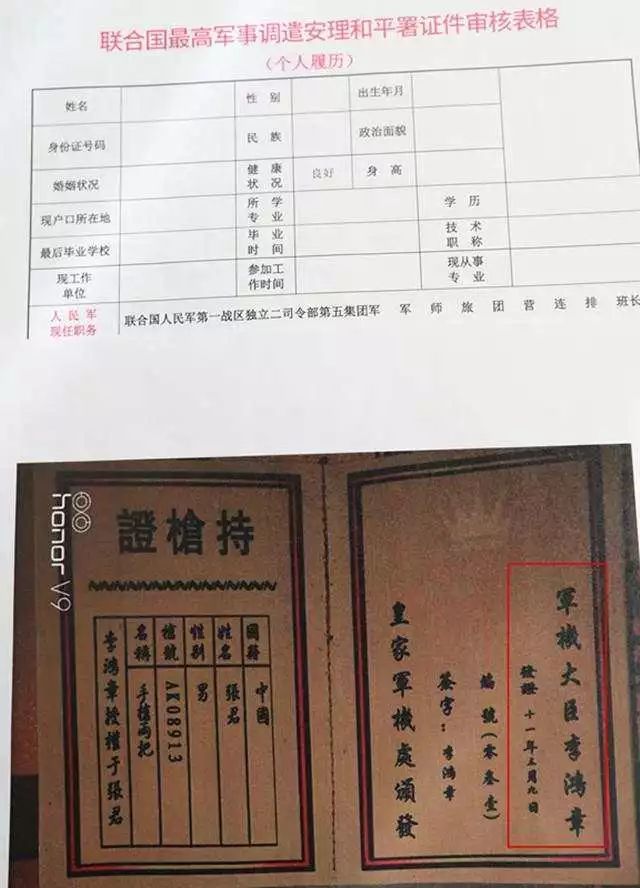 联合国最高军事调遣安理和平署证件审核表格
（个人履历）
姓名 性别 出生年月
身份证号码 民族 政治面貌
婚姻状况 健康状况 良好 身高
现户口所在地 所学专业 学历
最后毕业学校 毕业时间 技术职称
现工作单位 参加工作时间 现从事专业
人民军现任职务 联合国人民军第一战区独立二司令部第五集团军 军 师 旅 团 营 连 排 班长
honor V9
證槍持
國籍 中國
姓名 張君
性别 男
槍號 AK08913
名稱 手槍兩把
李鴻章授權于張君
軍機大臣李鴻章
發證 十一年三月九日
編號（零叁壹）
簽字：李鴻章
皇家軍機處頒發